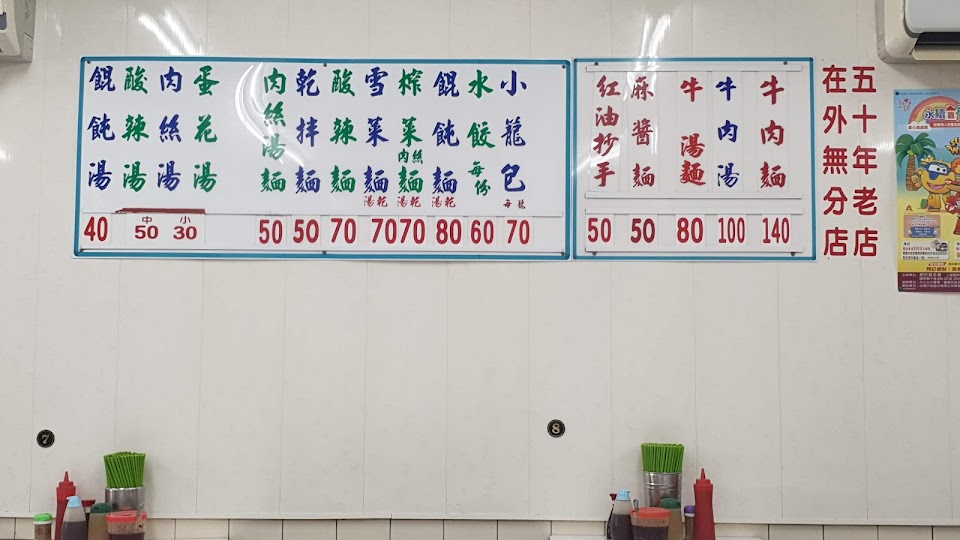 五十年老店
在外無分店
牛肉麵 140
牛肉湯 100
牛湯麵 80
麻醬麵 50
紅油抄手 50
小籠包 每籠 70
水餃 每份 60
餛飩麵 湯乾 80
榨菜肉絲麵 湯乾 70
雪菜麵 湯乾 70
酸辣麵 70
乾拌麵 50
肉絲湯麵 50
蛋花湯
肉絲湯
酸辣湯
小 30
中 50
餛飩湯 40
永續
7
8